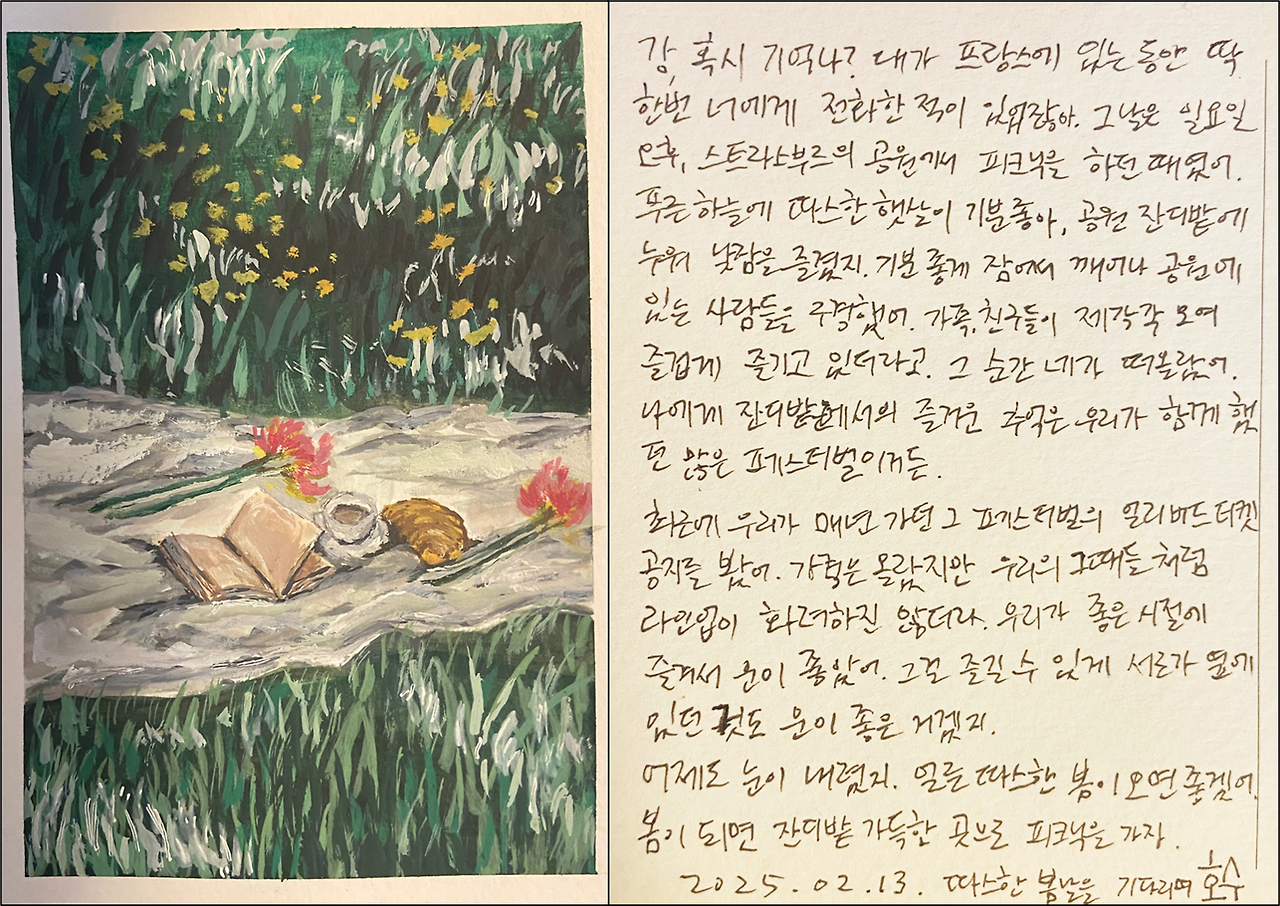 감, 혹시 기억나? 내가 프랑스에 있는 동안 딱
한번 너에게 전화한 적이 있었잖아. 그날은 일요일
오후, 스트라스부르의 공원에서 피크닉을 하던 때였어.
푸른 하늘에 따스한 햇살이 기분 좋아, 공원 잔디밭에
누워 낮잠을 즐겼지. 기분 좋게 잠에서 깨어나 공원에
있는 사람들을 구경했어. 가족, 친구들이 제각각 모여
즐겁게 즐기고 있더라고. 그 순간 네가 떠올랐어.
나에게 잔디밭에서의 즐거운 추억은 우리가 함께 했
던 많은 페스티벌이거든.
최근에 우리가 매년 가던 그 페스티벌의 얼리버드 티켓
공지를 봤어. 가격은 올랐지만 우리의 그때들처럼
라인업이 화려하진 않더라. 우리가 좋은 시절에
즐겨서 운이 좋았어. 그걸 즐길 수 있게 서로가 옆에
있던 것도 운이 좋은 거겠지.
어제도 눈이 내렸지. 얼른 따스한 봄이 오면 좋겠어.
봄이 되면 잔디밭 가득한 곳으로 피크닉을 가자.
2025.02.13. 따스한 봄날을 기다리며 호수